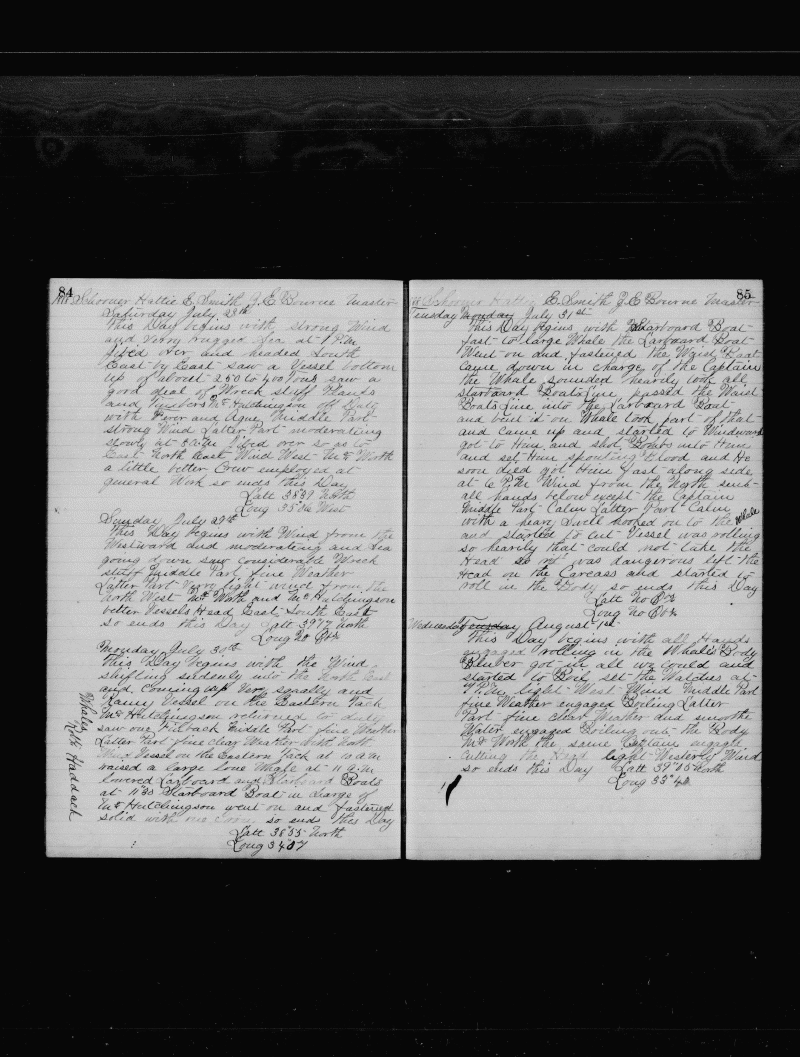 84
Schooner Hattie E. Smith J. E. Bourne Master
Saturday July 28th
This Day begins with strong Wind
and Very rugged Sea at 1 P.M.
Jibed over and headed South
East by East saw a Vessel bottom
up of about 250 to 400 Tons saw a
good deal of Wreck stuff Planks
and Mr Hutchingson off Duty
with Fever and Ague Middle Part
strong Wind Latter Part moderating
slowly at Jibed over so as to
East North East Wind West Mr Worth
a little better Crew employed at
general Work so ends this Day
Latt 38"39 North
Long 35" West
Sunday July 29th
This Day begins with Wind from the
Westward and moderating and Sea
going down saw Considerable Wreck
stuff Middle Part fine Weather
Latter Part Very light wind from the
North West Mr Worth and Mr Hutchingson
better Vessels Head East South East
so ends this Day Latt 39"17 North
Long no Obs
Monday July 30th
This Day begins with the Wind
shifting suddenly into the North East
and Coming up Very squally and
Rainy Vessel on the Eastern Tack
Mr Hutchingson returned to duty
saw one Finback Middle Part fine Weather
Latter Part fine clear Weather Wind North
West Vessel on the Eastern Tack at 10 A.M.
raised a large Lone Whale at 11 A.M.
lowered Larboard and Starboard Boats
at 11"30 Starboard Boat in charge of
Mr Hutchingson went on and fastened
solid with one so ends this Day
Latt 38"55 North
Long 34"07
Whales
85
Schooner Hattie E. Smith J E Bourne Master
Tuesday Monday July 31st
This Day begins with Starboard Boat
fast to large Whale the Larboard Boat
Went on and fastened the Waist Boat
came down in charge of the Captain
the Whale sounded heavily took all
Starboard Boats Line passed the Waist
Boats Line into the Larboard Boat
and bent it on Whale took part of that
and came up and started to Windward
got to Him and shot Bombs into Him
and set Him spouting Blood and He
soon died got Him fast along side
at 6 P.M. Wind from the North sent
all hands below except the Captain
Middle Part Calm Latter Part Calm
with a heavy Swell hooked on to the Whale
and started to Cut Vessel was rolling
so heavily that could not take the
Head so it was dangerous left the
Head on the Carcass and started to
roll in the Body so ends this Day
Latt no Obs
Long no Obs
Wednesday Tuesday August 1st
This Day begins with all Hands
engaged rolling in the Whales Body
Blubber got in all we could and
started to Boil set the Watches at
7 P.M. light West Wind Middle Part
fine Weather engaged Boiling Latter
Part fine clear Weather and smooth
Water engaged Boiling out the Body
Mr Worth the same Captain engaged
Cutting the Head light Westerly Wind
so ends this Day Latt 39"05 North
Long 33"40